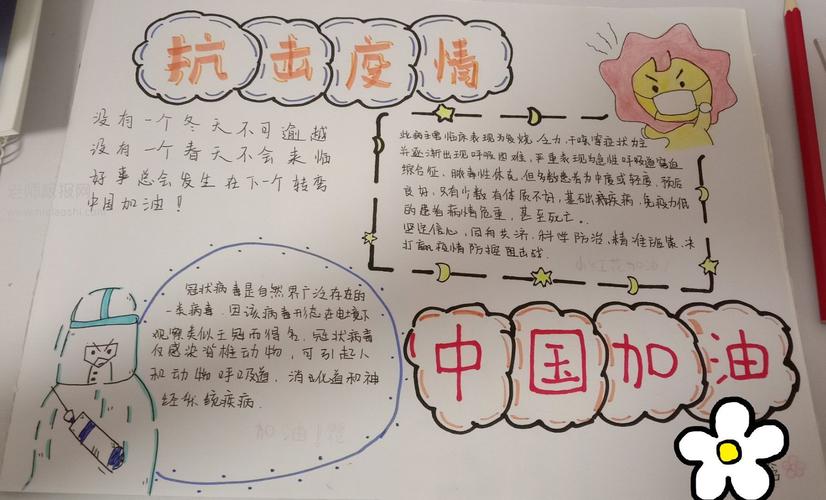 抗击疫情
没有一个冬天不可逾越
没有一个春天不会来临
好事总会发生在下一个转弯
中国加油!
此病主要临床表现为发烧、乏力、干咳等症状为主
并逐渐出现呼吸困难,严重表现为急性呼吸窘迫
缩合征、脓毒性休克,但多数患者为中度或轻度,预后
良好,只有少数有体质不好,基础病疾病,免疫力低
的患者病情危重,甚至死亡。
坚定信心,同舟共济,科学防治、精准施策、
打赢疫情防控阻击战
冠状病毒是自然界广泛存在的
一类病毒。因该病毒形态在电镜下
观察类似王冠而得名。冠状病毒
仅感染脊椎动物,可引起人
和动物呼吸道、消化道和神
经系统疾病.
中国加油